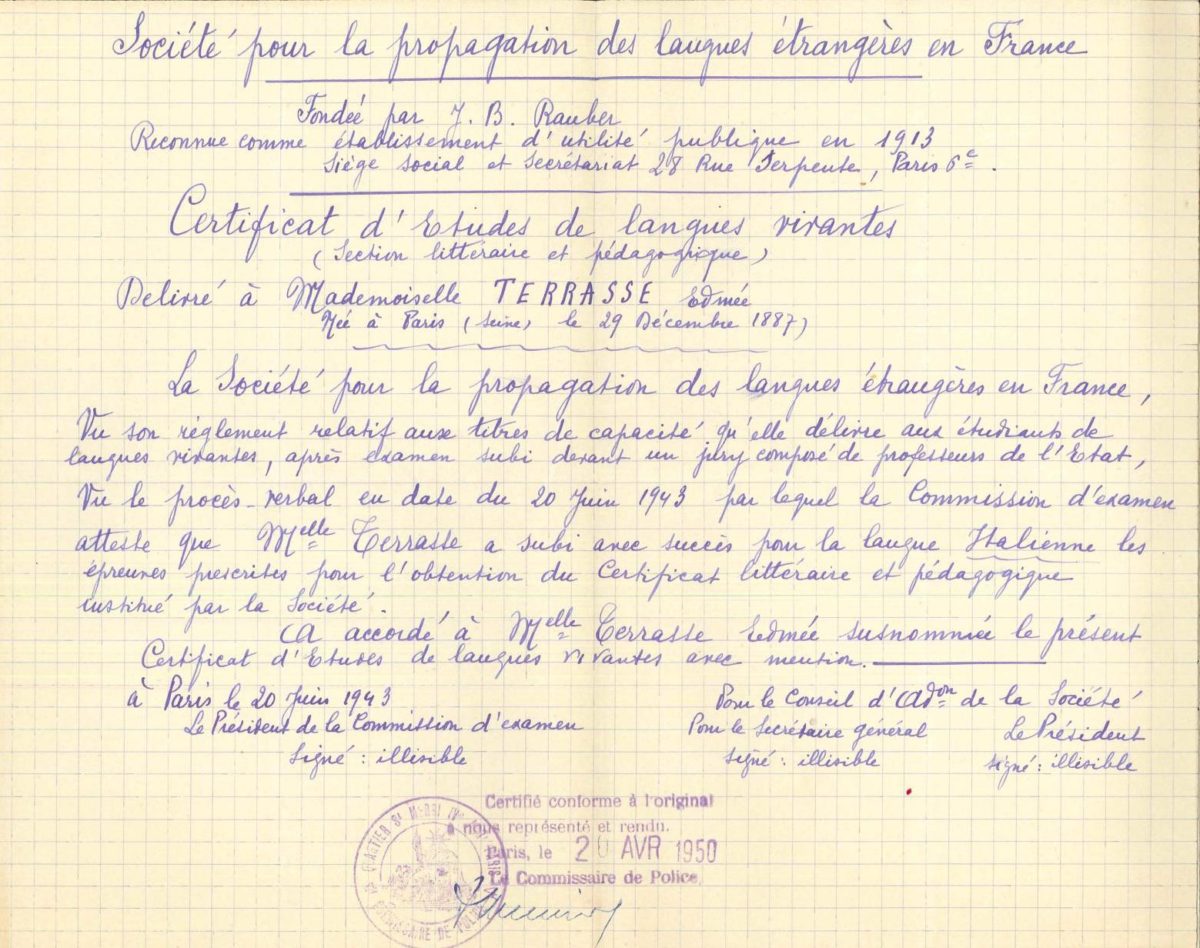 Société pour la propagation des langues étrangères en France
Fondée par J. B. Rauber
Reconnue comme établissement d'utilité publique en 1913
Siège social et Secrétariat 28 Rue Serpente, Paris 6e.
Certificat d'Etudes de langues vivantes
(Section littéraire et pédagogique)
Delivré à Mademoiselle TERRASSE Edmée
Née à Paris (Seine) le 29 Décembre 1887)
La Société pour la propagation des langues étrangères en France,
Vu son règlement relatif aux titres de capacité qu'elle délivre aux étudiants de
langues vivantes, après examen subi devant un jury composé de professeurs de l'Etat,
Vu le procès-verbal en date du 20 Juin 1943 par lequel la Commission d'examen
atteste que Melle Terrasse a subi avec succès pour la langue Italienne les
épreuves prescrites pour l'obtention du Certificat littéraire et pédagogique
institué par la Société.
A accordé à Melle Terrasse Edmée susnommée le présent
Certificat d'Etudes de langues vivantes avec mention.
à Paris le 20 Juin 1943
Le Président de la Commission d'examen
Signé : illisible
Pour le Conseil d'Adon de la Société
Pour le Secrétaire général Le Président
Signé : illisible signé : illisible
Certifié conforme à l'original
à nous représenté et rendu.
Paris, le 20 AVR 1950
Le Commissaire de Police,
COMMISSAIRE DE POLICE